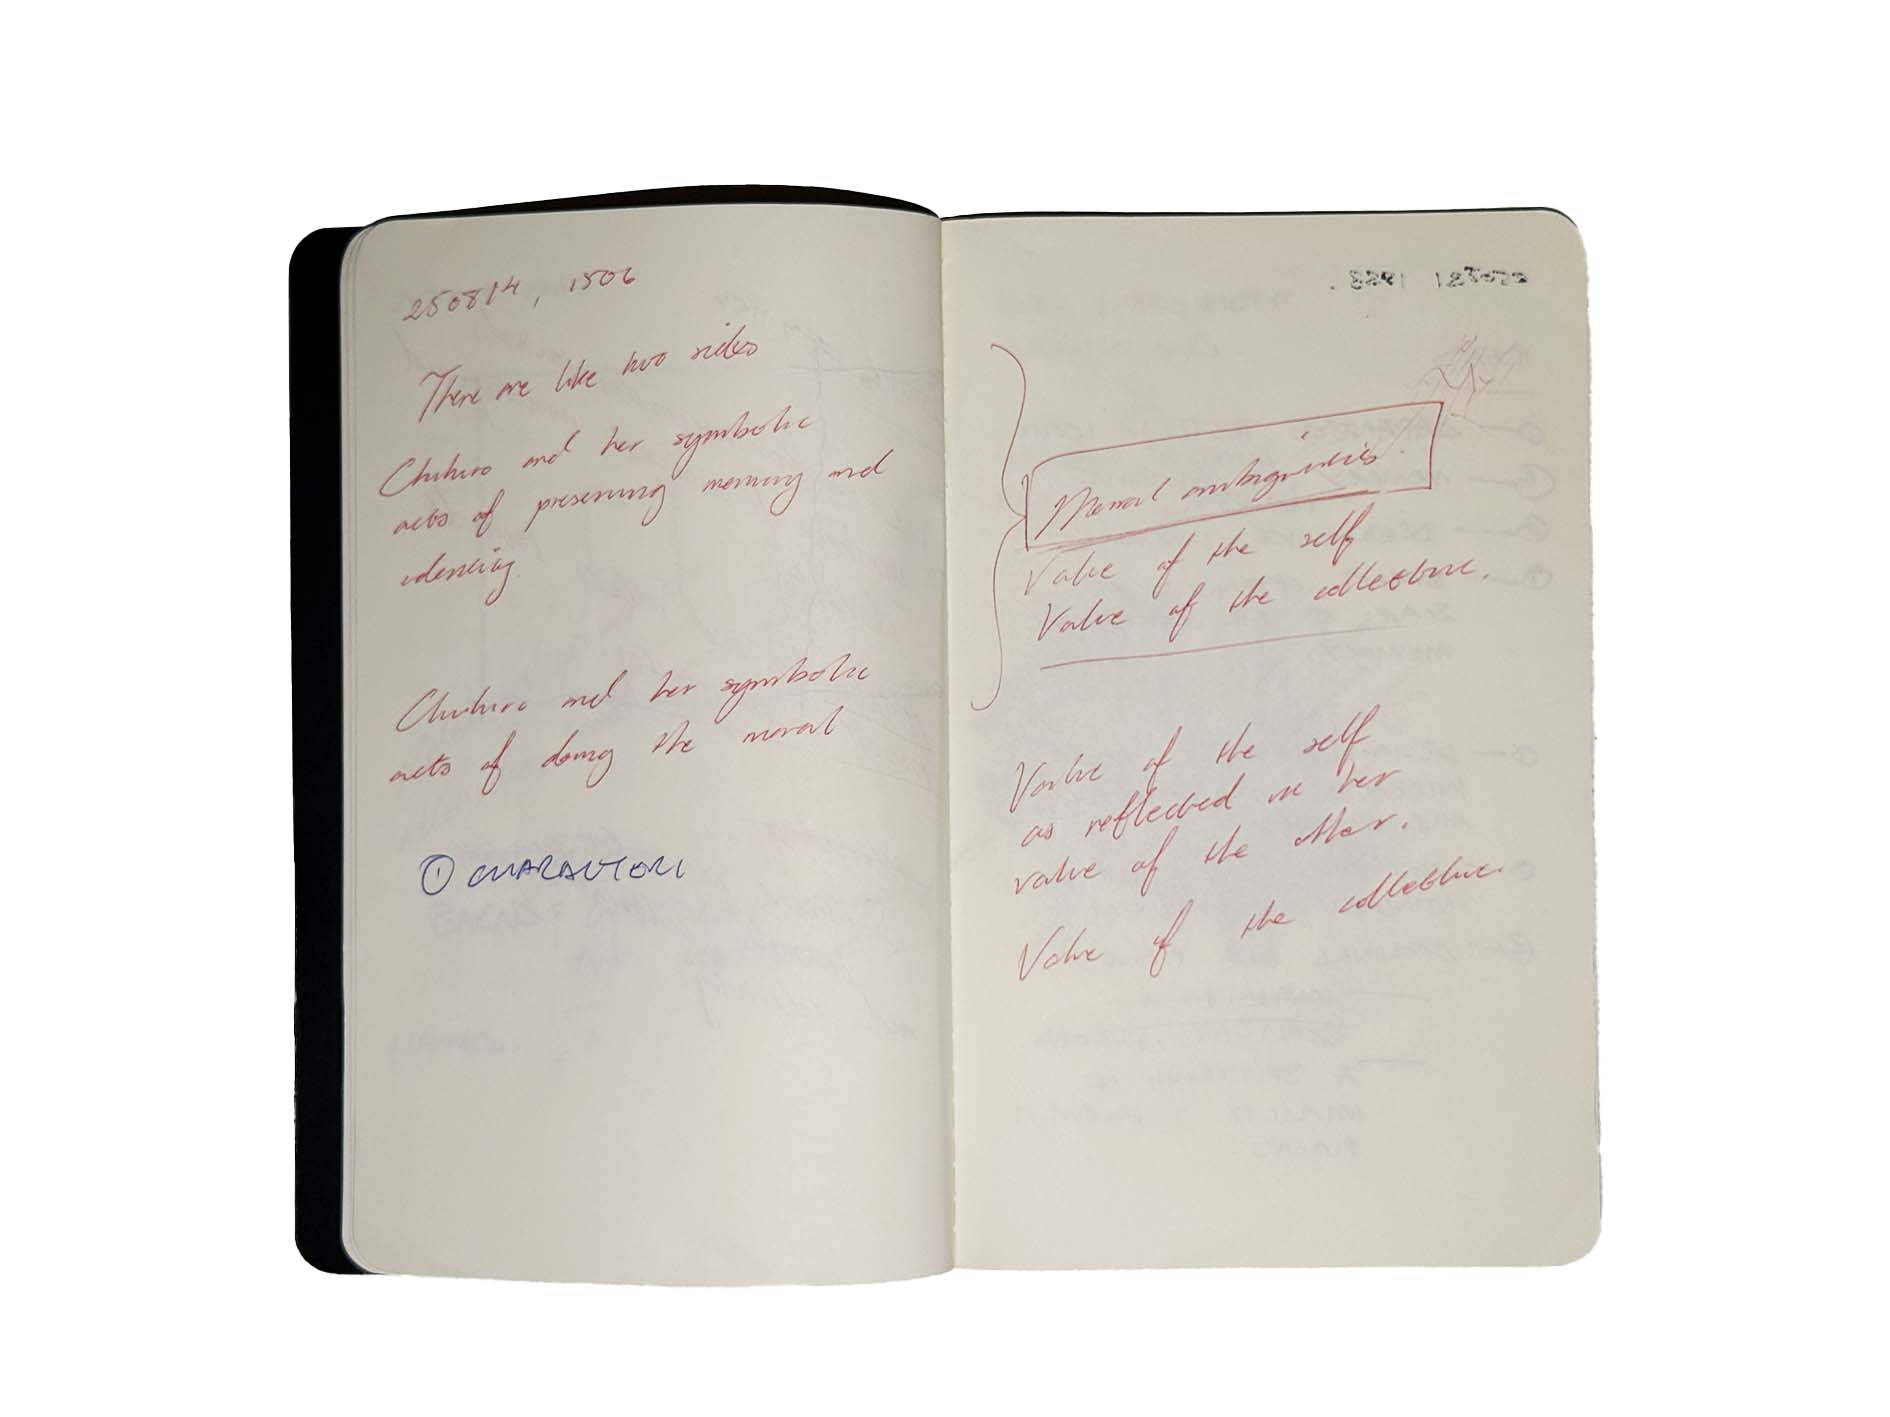 250814, 1506
There are like two sides
Chihiro and her symbolic
acts of preserving memory and
identity.
Chihiro and her symbolic
acts of doing the moral
①
Moral ambiguities.
Value of the self
Value of the collective.
Value of the self
as reflected in her
value of the other.
Value of the collective.